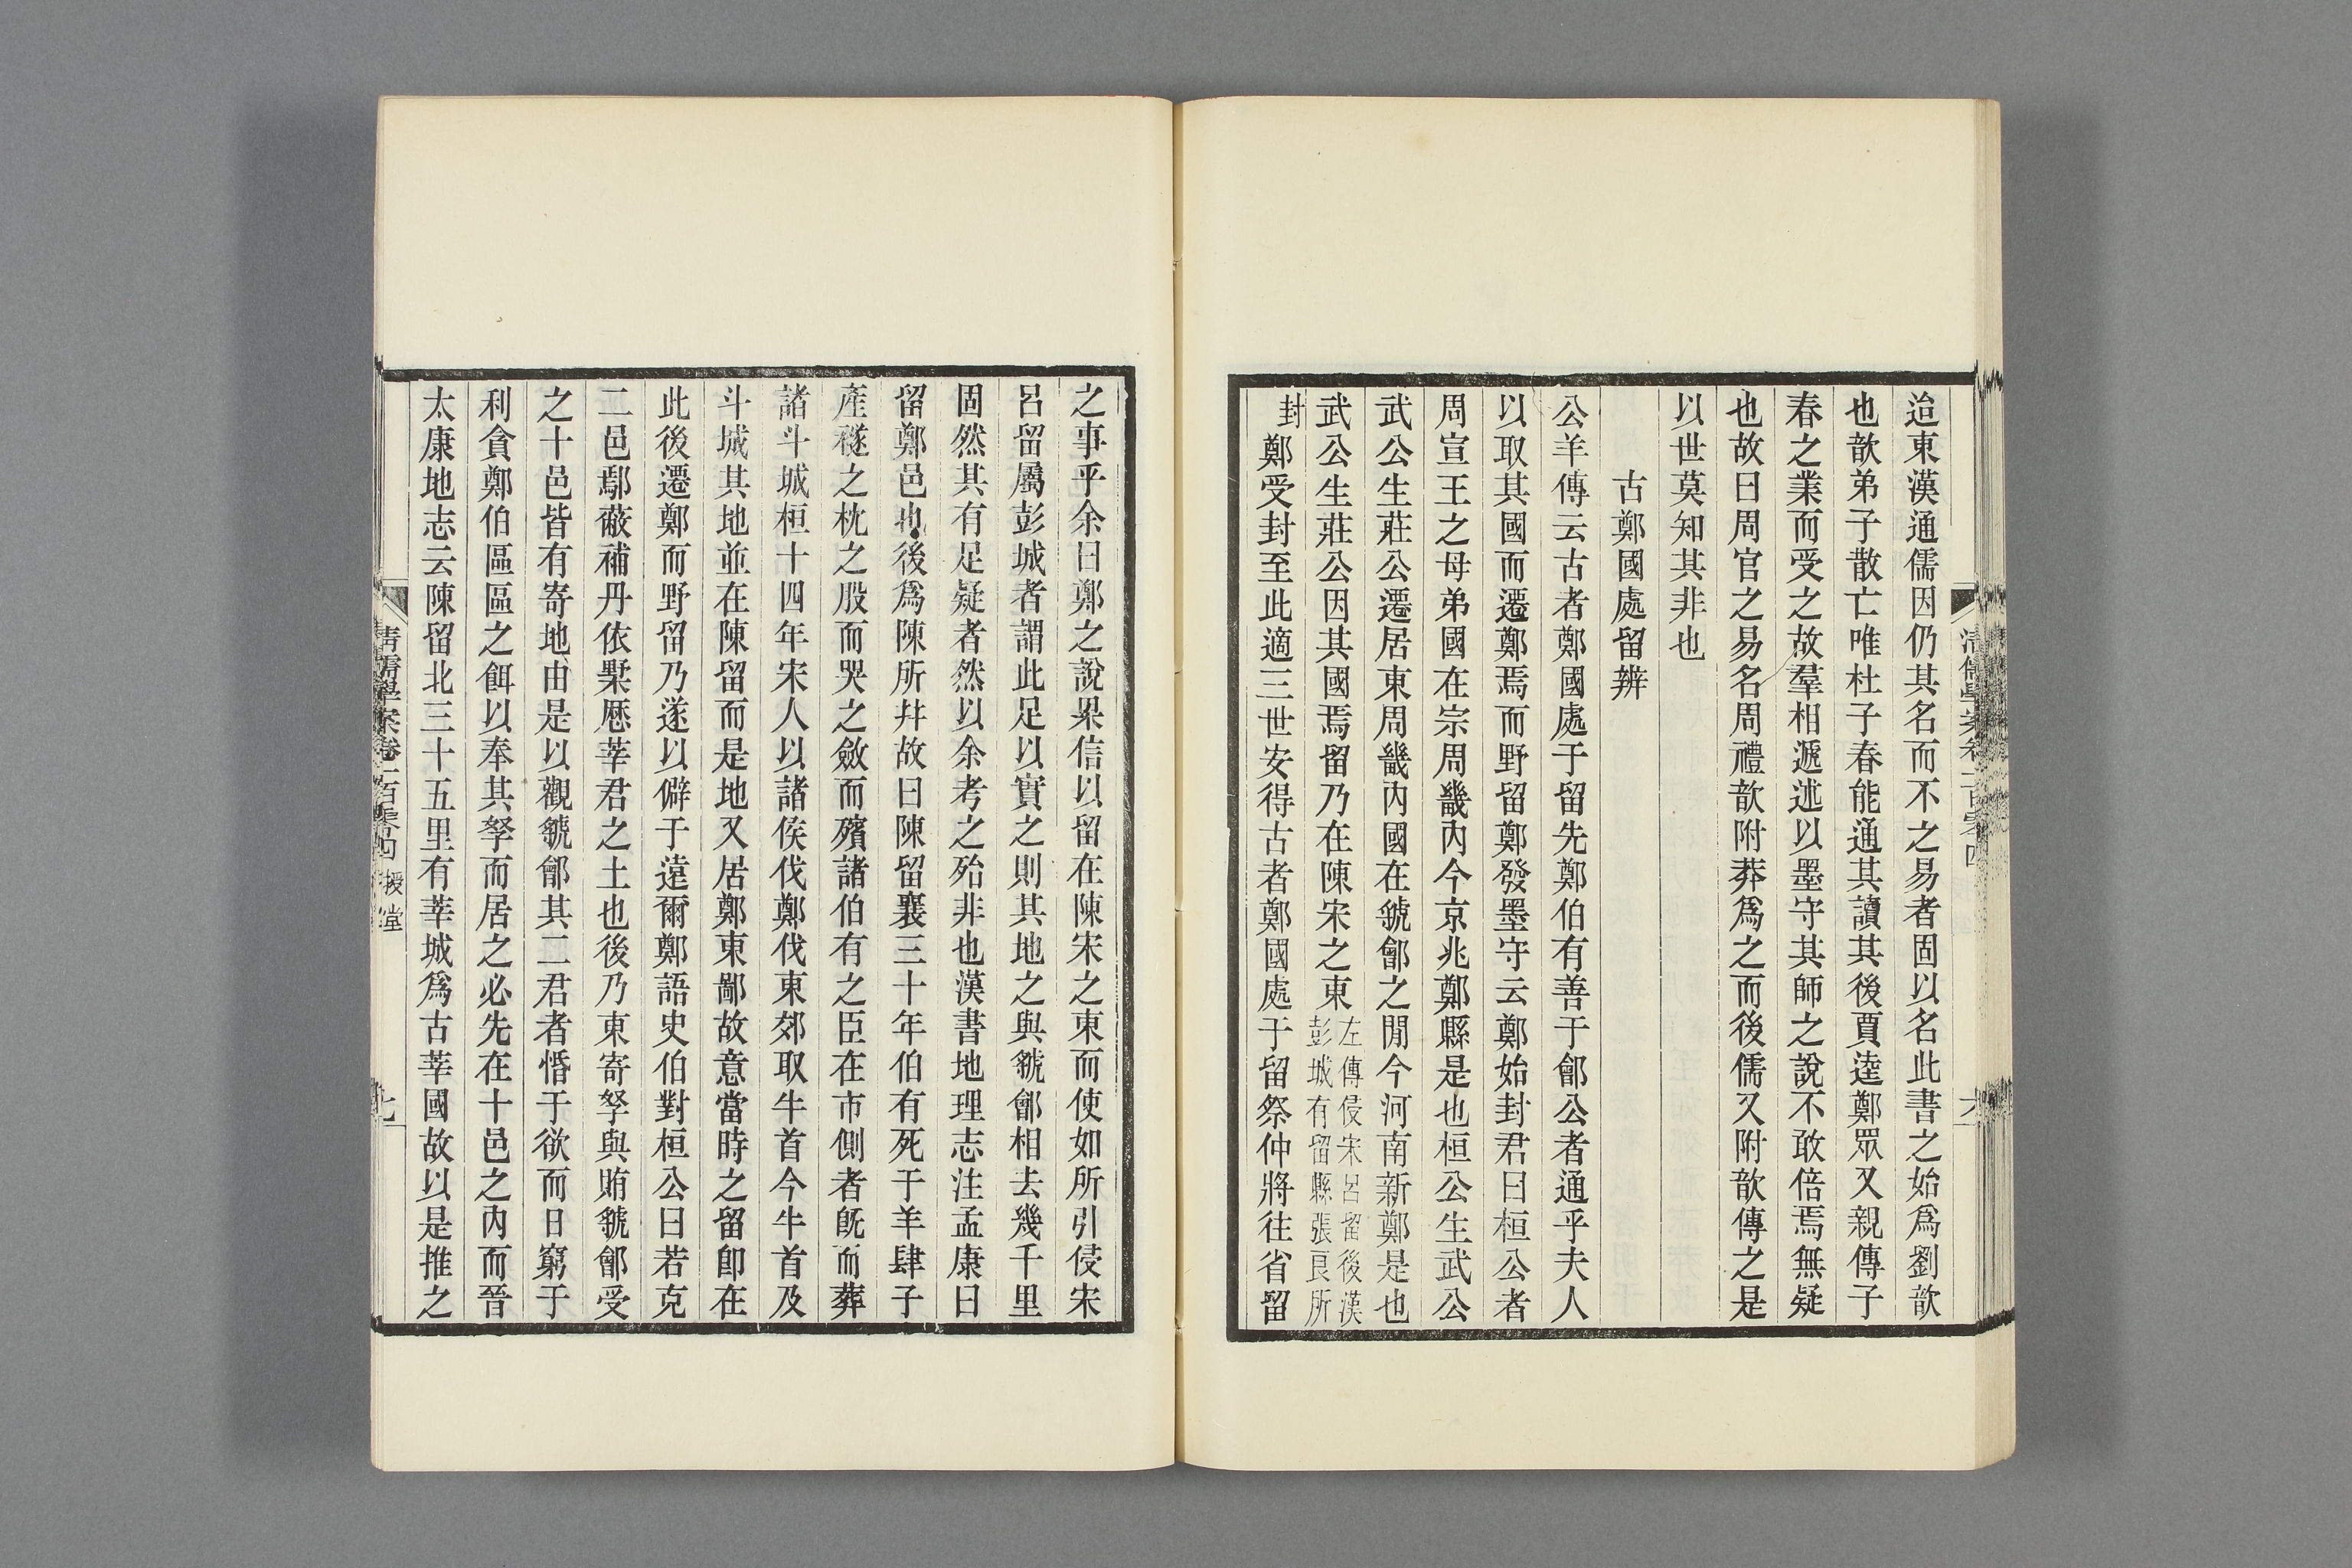 迨東漢通儒因仍其名而不之易者固以名此書之始爲劉歆
也歆弟子散亡唯杜子春能通其讀其後賈逵鄭眾又親傳子
春之業而受之故羣相遞述以墨守其師之說不敢倍焉無疑
也故曰周官之易名周禮歆附莽爲之而後儒又附歆傳之是
以世莫知其非也
古鄭國處留辨
公羊傳云古者鄭國處于留先鄭伯有善于鄶公者通乎夫人
以取其國而遷鄭焉而野留鄭發墨守云鄭始封君曰桓公者
周宣王之母弟國在宗周畿內今京兆鄭縣是也桓公生武公
武公生莊公遷居東周畿內國在虢鄶之閒今河南新鄭是也
武公生莊公因其國焉留乃在陳宋之東左傳侵宋呂留後漢彭城有留縣張良所
封鄭受封至此適三世安得古者鄭國處于留祭仲將往省留
之事乎余曰鄭之說果信以留在陳宋之東而使如所引侵宋
呂留屬彭城者謂此足以實之則其地之與虢鄶相去幾千里
固然其有足疑者然以余考之殆非也漢書地理志注孟康曰
留鄭邑也後爲陳所幷故曰陳留襄三十年伯有死于羊肆子
產襚之枕之股而哭之斂而殯諸伯有之臣在市側者旣而葬
諸斗城桓十四年宋人以諸侯伐鄭伐東郊取牛首今牛首及
斗城其地並在陳留而是地又居鄭東鄙故意當時之留卽在
此後遷鄭而野留乃遂以僻于遠爾鄭語史伯對桓公曰若克
二邑鄢蔽補丹依𪑙歷莘君之土也後乃東寄孥與賄虢鄶受
之十邑皆有寄地由是以觀虢鄶其二君者惛于欲而日窮于
利貪鄭伯區區之餌以奉其孥而居之必先在十邑之內而晉
太康地志云陳留北三十五里有莘城爲古莘國故以是推之
清儒學案卷二百零四 授堂
七